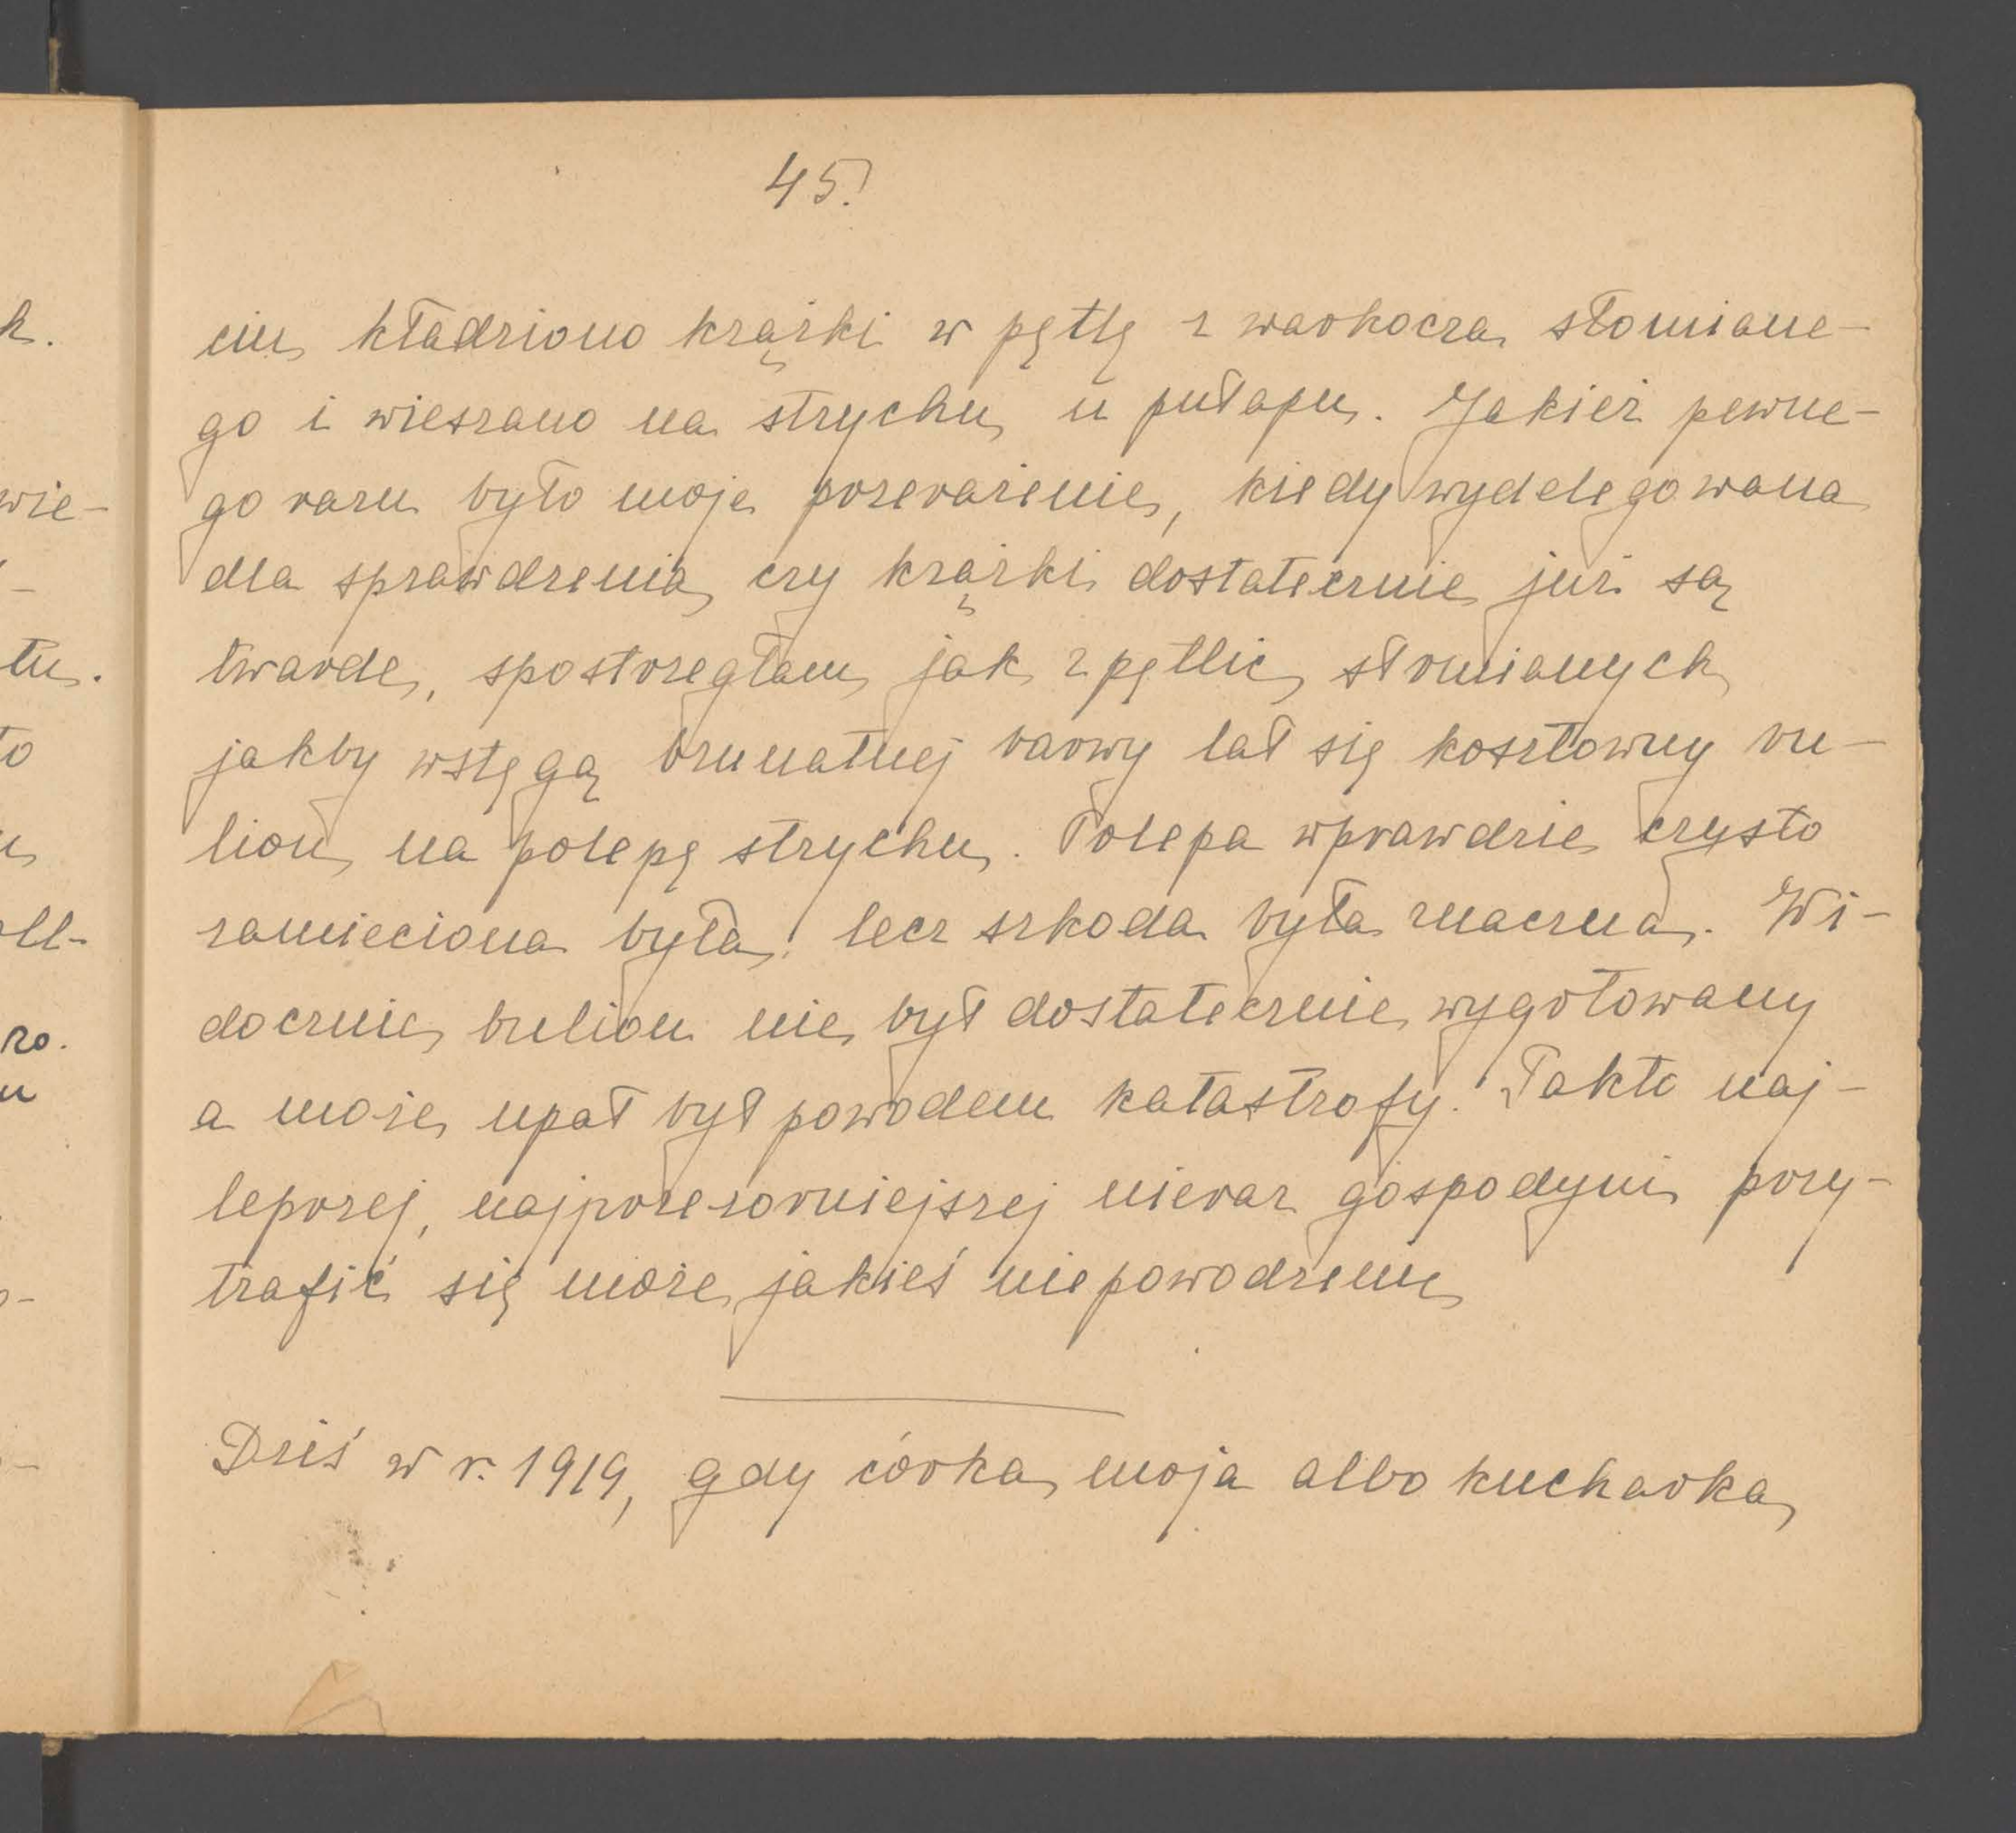 45.
ciu kładziono krążki w pętlę z warkocza słomiane-
go i wieszano na strychu u pułapu. Jakież pewne-
go razu było moje przerażenie, kiedy wydelegowana
dla sprawdzenia, czy krążki dostatecznie już są
twarde, spostrzegłam jak z pętlic słomianych
jakby wstęgą brunatnej barwy lał się kosztowny bu-
lion na polepę strychu. Polepa wprawdzie czysto
zamieciona była, lecz szkoda była znaczna. Wi-
docznie bulion nie był dostatecznie wygotowany
a może upał był powodem katastrofy. Takto naj-
lepszej, najprzezorniejszej nieraz gospodyni przy-
trafić się może jakieś niepowodzenie
Dziś w r. 1919, gdy córka moja albo kucharka
k.
wie-
-
tu.
to
ll-
zo.
u
-
-